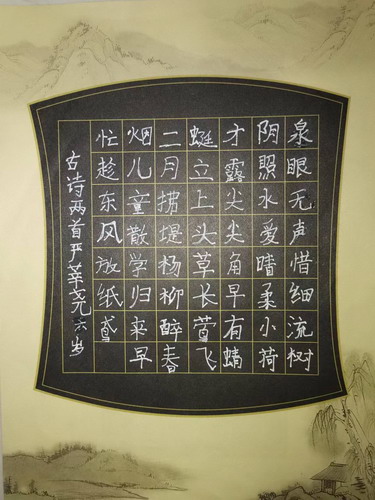 泉眼无声惜细流树
阴照水爱晴柔小荷
才露尖尖角早有蜻
蜓立上头草长莺飞
二月拂堤杨柳醉春
烟儿童散学归来早
忙趁东风放纸鸢
古诗两首严莘尧岁